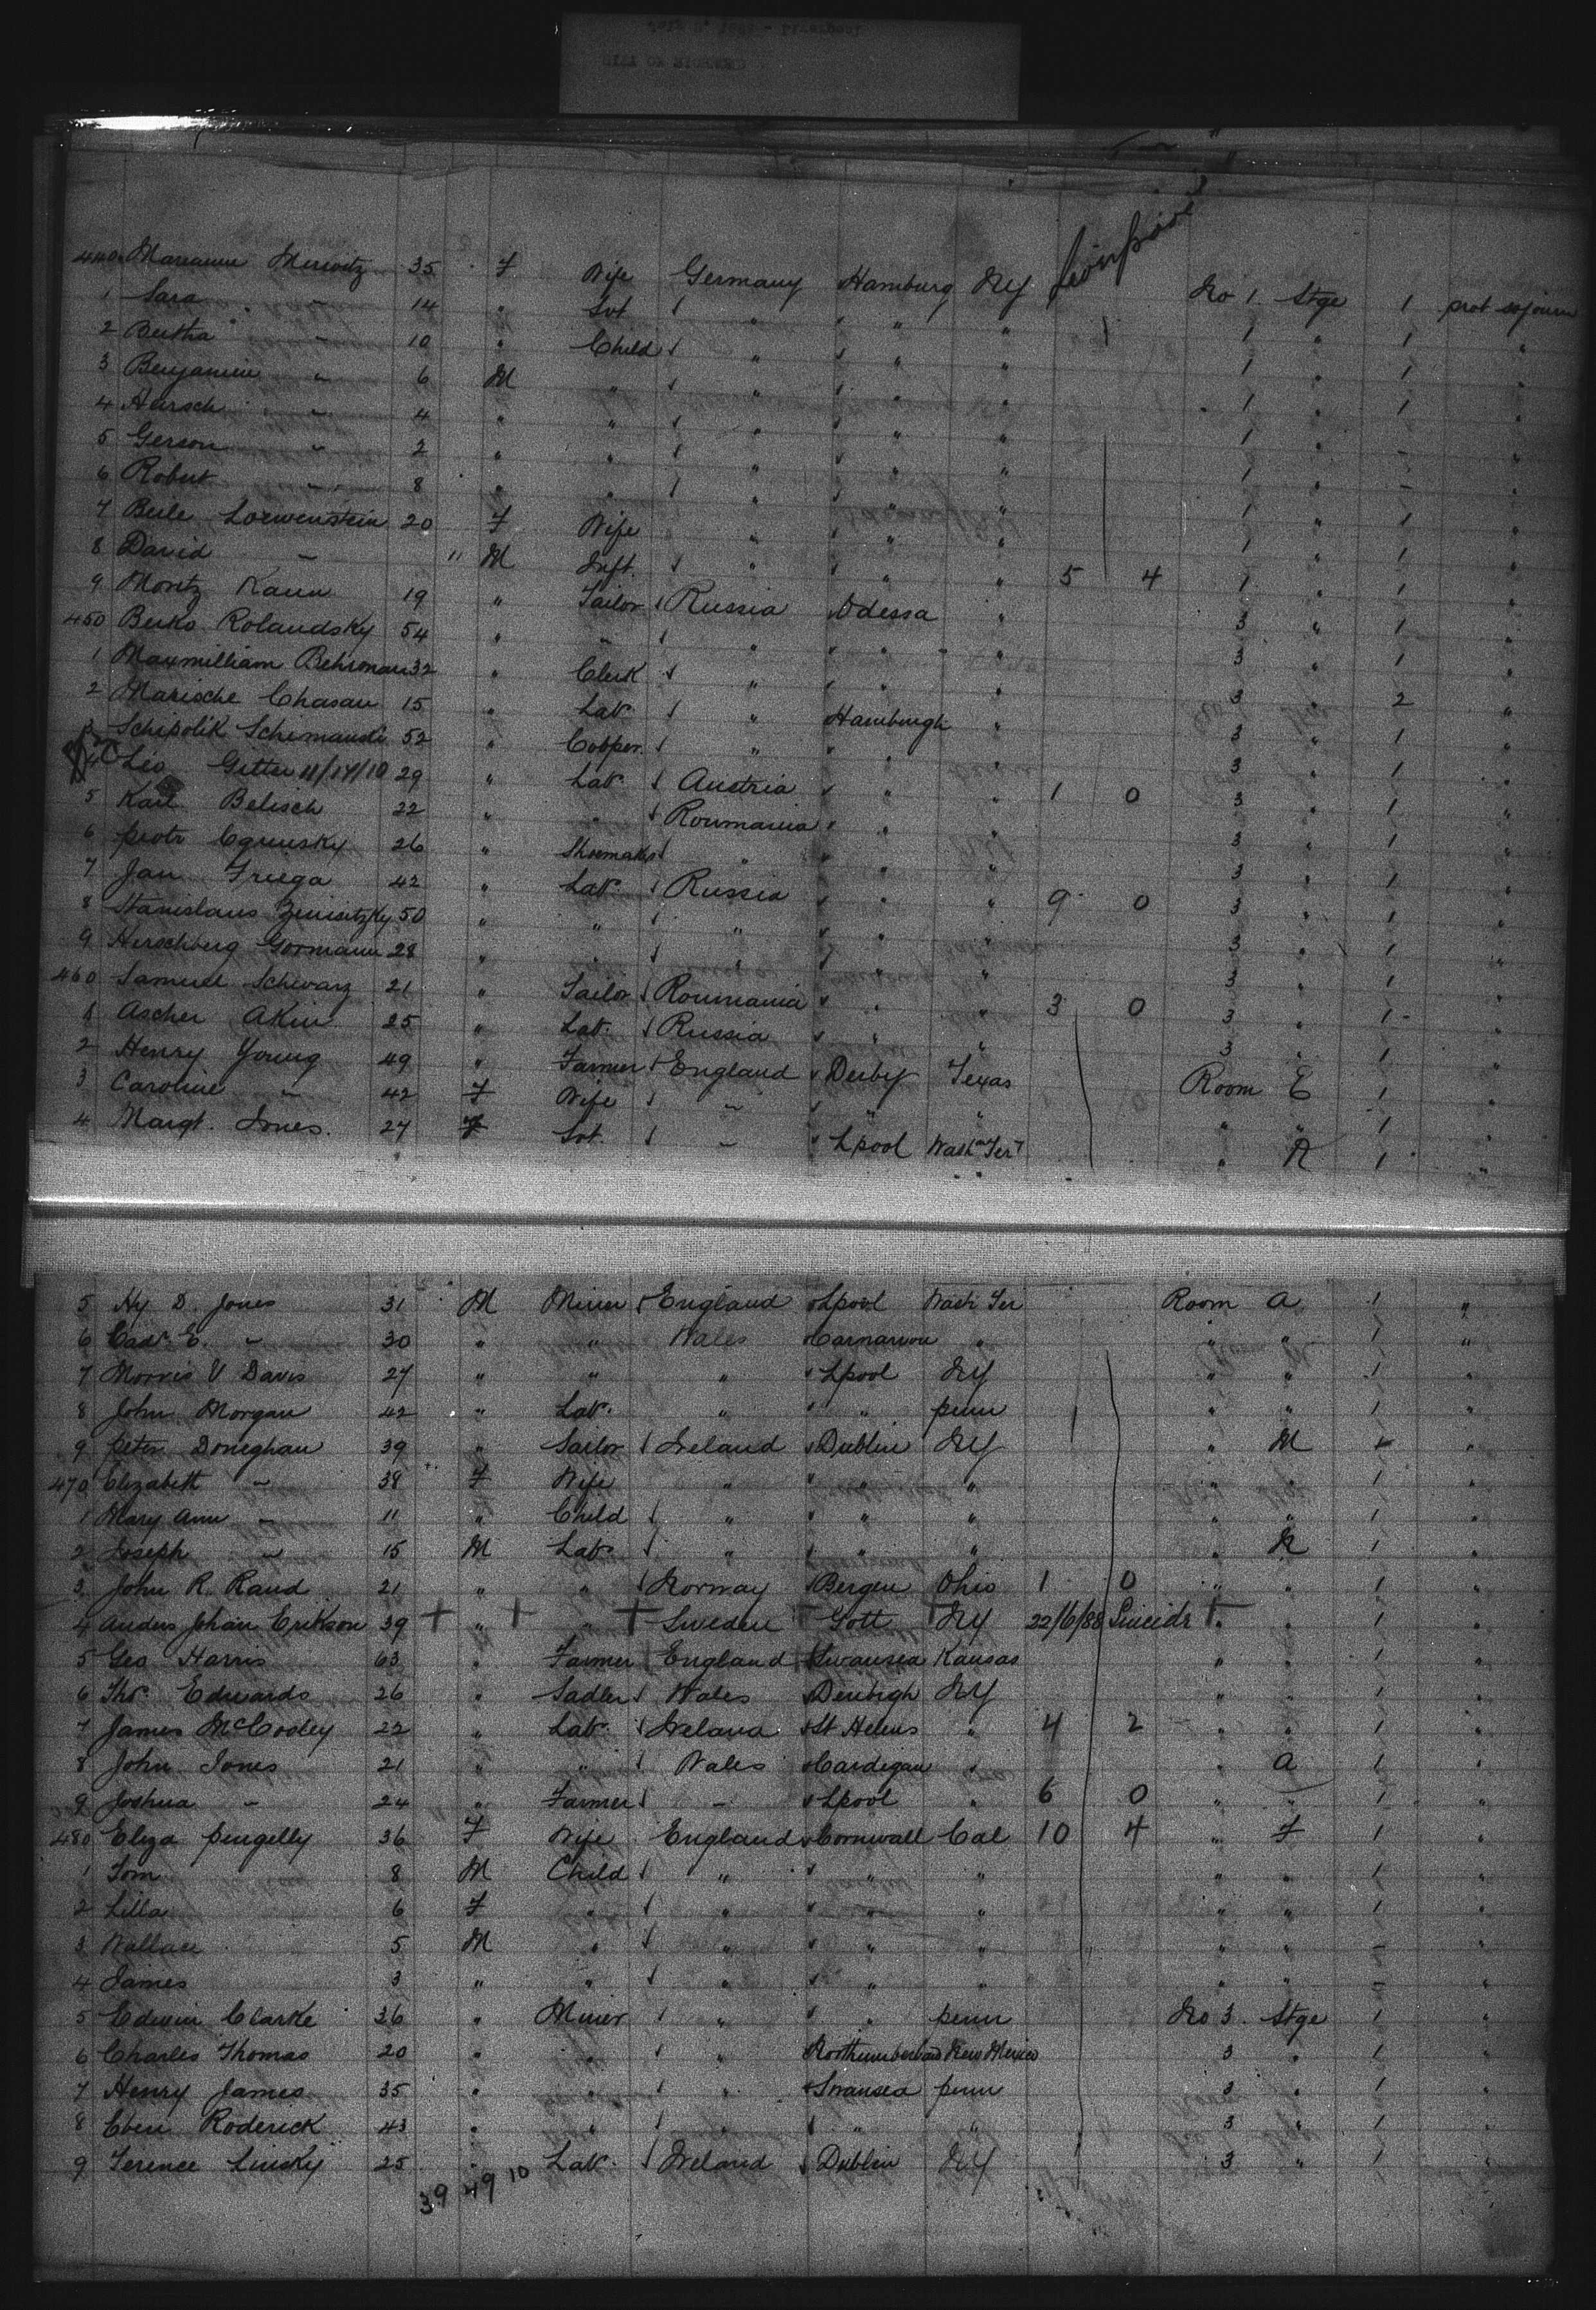 Liverpool
440 Marianne Hurwitz 35 F Wife Germany Hamburg NY No 1 Stge 1 prot sojourn
1 Sara " 14 " Svt " " " 1 " 1 "
2 Bertha " 10 " Child " " " 1 " 1 "
3 Benjamin " 6 M " " " " 1 " 1 "
4 Hirsch " 4 " " " " " 1 " 1 "
5 Gerson " 2 " " " " " 1 " - "
6 Robert " 8 " " " " " 1 " - "
7 Beile Loewenstein 20 F Wife " " " 1 " 1 "
8 David " 11 M Inft " " " 5 4 1 " 1 "
9 Moritz Kann 19 " Tailor Russia Odessa " 1 " 1 "
450 Berko Rolandsky 54 " " " " " 3 " 1 "
1 Maxmilliam Behrman 32 " Clerk " " " 3 " 1 "
2 Marische Chasan 15 " Lab " Hamburgh " 3 " 2 "
3 Schepolik Schimanski 52 " Cooper " " " 3 " 1 "
4 Leo Getter 11/17/10 29 " Lab Austria " " 1 0 3 " 1 "
5 Karl Belisch 22 " " Roumania " " 3 " 1 "
6 piotr 26 " Shoemaker " " " 3 " 1 "
7 Jan Friega 42 " Lab Russia " " 9 0 3 " 1 "
8 Stanislaus 50 " " " " " 3 " 1 "
9 Herschberg Gormann 28 " " " " " 3 " 1 "
460 Samuel Schwarz 21 " Tailor Roumania " " 3 0 3 " 1 "
1 Ascher Akin 25 " Lab Russia " " 3 " 1 "
2 Henry Young 49 " Farmer England Derby Texas Room E 1 "
3 Caroline " 42 F Wife " " " " " 1 "
4 Margt. Jones 27 F Svt " Lpool Wash Ter " R 1 "
5 Hy D. Jones 31 M Miner England Lpool Wash Ter Room A 1 "
6 Cadr E. " 30 " " Wales Carnarvon " " " 1 "
7 Morris V Davis 27 " " " Lpool NY " " 1 "
8 John Morgan 42 " Lab " " penn " " 1 "
9 peter Doneghan 39 " Sailor Ireland Dublin NY " M 1 "
470 Elizabeth " 38 F Wife " " " " " 1 "
1 Mary Ann " 11 " Child " " " " " 1 "
2 Joseph " 15 M Lab " " " " R 1 "
3 John R. Rand 21 " " Norway Bergen Ohio 1 0 " " 1 "
4 Anders Johan Erikson 39 " " Sweden Gott NY 22/6/88 Suicide " " 1 "
5 Geo Harris 63 " Farmer England Swansea Kansas " " 1 "
6 Thos. Edwards 26 " Sadler Wales Denbigh NY " " 1 "
7 James McCooley 22 " Lab Ireland St Helens " 4 2 " " 1 "
8 John Jones 21 " " Wales Cardigan " " A 1 "
9 Joshua " 24 " Farmer " Lpool " 6 0 " " 1 "
480 Eliza pengelly 36 F Wife England Cornwall Cal 10 4 " F 1 "
1 Tom 8 M Child " " " " " 1 "
2 Lilla 6 F " " " " " " 1 "
3 Wallace 5 M " " " " " " - "
4 James 3 " " " " " " " - "
5 Edwin Clarke 26 " Miner " " penn No 3 Stge 1 "
6 Charles Thomas 20 " " " Northumberland New Mexico 3 " 1 "
7 Henry James 35 " " " Swansea penn 3 " 1 "
8 Eben Roderick 43 " " " " " 3 " 1 "
9 Terence Linsky 25 " Lab Ireland Dublin NY 3 " 1 "
39 49 10